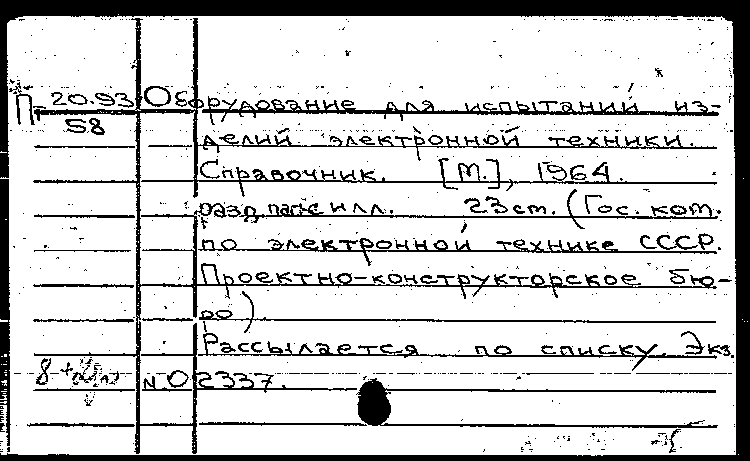 П-20.93 Оборудование для испытаний из-
58
делий электронной техники.
Справочник. [М.], 1964.
разд. паг. с илл. 23 cm. (Гос. ком.
по электронной технике СССР.
Проектно-конструкторское бю-
ро)
Рассылается по списку. Экз.
N. 02337.